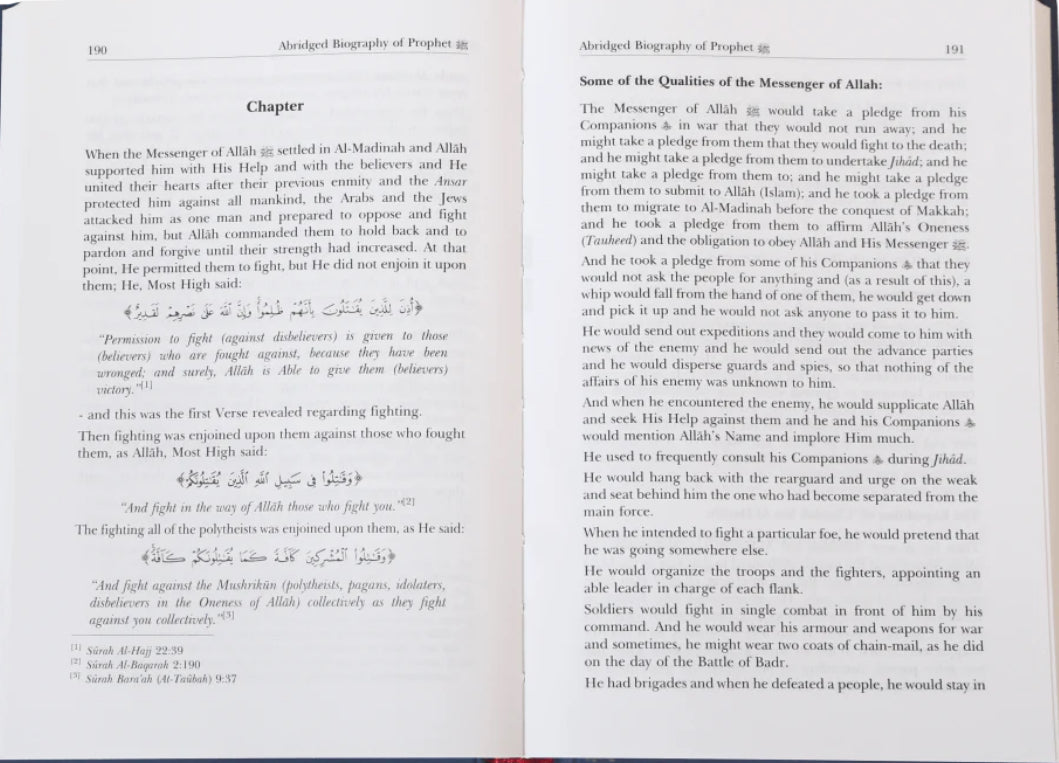 190
Abridged Biography of Prophet ﷺ
Chapter
When the Messenger of Allāh ﷺ settled in Al-Madinah and Allāh
supported him with His Help and with the believers and He
united their hearts after their previous enmity and the Ansar
protected him against all mankind, the Arabs and the Jews
attacked him as one man and prepared to oppose and fight
against him, but Allāh commanded them to hold back and to
pardon and forgive until their strength had increased. At that
point, He permitted them to fight, but He did not enjoin it upon
them; He, Most High said:
﴿أُذِنَ لِلَّذِينَ يُقَٰتَلُونَ بِأَنَّهُمْ ظُلِمُوا۟ وَإِنَّ ٱللَّهَ عَلَىٰ نَصْرِهِمْ لَقَدِيرٌ﴾
"Permission to fight (against disbelievers) is given to those
(believers) who are fought against, because they have been
wronged; and surely, Allāh is Able to give them (believers)
victory."[1]
- and this was the first Verse revealed regarding fighting.
Then fighting was enjoined upon them against those who fought
them, as Allāh, Most High said:
﴿وَقَٰتِلُوا۟ فِى سَبِيلِ ٱللَّهِ ٱلَّذِينَ يُقَٰتِلُونَكُمْ﴾
"And fight in the way of Allāh those who fight you."[2]
The fighting all of the polytheists was enjoined upon them, as He said:
﴿وَقَٰتِلُوا۟ ٱلْمُشْرِكِينَ كَآفَّةً كَمَا يُقَٰتِلُونَكُمْ كَآفَّةً﴾
"And fight against the Mushrikūn (polytheists, pagans, idolaters,
disbelievers in the Oneness of Allāh) collectively as they fight
against you collectively."[3]
[1] Sūrah Al-Hajj 22:39
[2] Sūrah Al-Baqarah 2:190
[3] Sūrah Bara'ah (At-Taūbah) 9:37
Abridged Biography of Prophet ﷺ
191
Some of the Qualities of the Messenger of Allah:
The Messenger of Allāh ﷺ would take a pledge from his
Companions in war that they would not run away; and he
might take a pledge from them that they would fight to the death;
and he might take a pledge from them to undertake Jihād; and he
might take a pledge from them to; and he might take a pledge
from them to submit to Allāh (Islam); and he took a pledge from
them to migrate to Al-Madinah before the conquest of Makkah;
and he took a pledge from them to affirm Allāh's Oneness
(Tauheed) and the obligation to obey Allāh and His Messenger ﷺ.
And he took a pledge from some of his Companions that they
would not ask the people for anything and (as a result of this), a
whip would fall from the hand of one of them, he would get down
and pick it up and he would not ask anyone to pass it to him.
He would send out expeditions and they would come to him with
news of the enemy and he would send out the advance parties
and he would disperse guards and spies, so that nothing of the
affairs of his enemy was unknown to him.
And when he encountered the enemy, he would supplicate Allāh
and seek His Help against them and he and his Companions
would mention Allāh's Name and implore Him much.
He used to frequently consult his Companions during Jihād.
He would hang back with the rearguard and urge on the weak
and seat behind him the one who had become separated from the
main force.
When he intended to fight a particular foe, he would pretend that
he was going somewhere else.
He would organize the troops and the fighters, appointing an
able leader in charge of each flank.
Soldiers would fight in single combat in front of him by his
command. And he would wear his armour and weapons for war
and sometimes, he might wear two coats of chain-mail, as he did
on the day of the Battle of Badr.
He had brigades and when he defeated a people, he would stay in